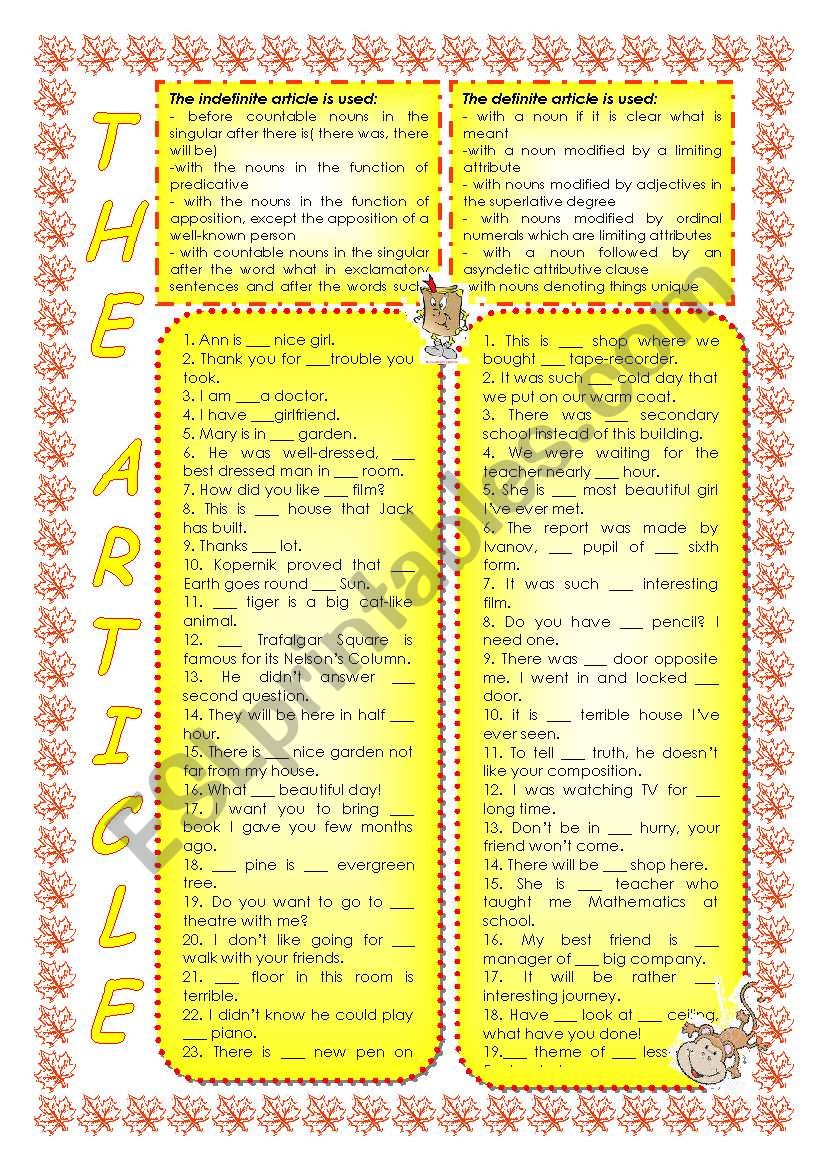 THE ARTICLE
The indefinite article is used:
- before countable nouns in the
singular after there is( there was, there
will be)
-with the nouns in the function of
predicative
- with the nouns in the function of
apposition, except the apposition of a
well-known person
- with countable nouns in the singular
after the word what in exclamatory
sentences and after the words such,
The definite article is used:
- with a noun if it is clear what is
meant
-with a noun modified by a limiting
attribute
- with nouns modified by adjectives in
the superlative degree
- with nouns modified by ordinal
numerals which are limiting attributes
- with a noun followed by an
asyndetic attributive clause
with nouns denoting things unique
1. Ann is ___ nice girl.
2. Thank you for ___trouble you
took.
3. I am ___a doctor.
4. I have ___girlfriend.
5. Mary is in ___ garden.
6. He was well-dressed, ___
best dressed man in ___ room.
7. How did you like ___ film?
8. This is ___ house that Jack
has built.
9. Thanks ___ lot.
10. Kopernik proved that ___
Earth goes round ___ Sun.
11. ___ tiger is a big cat-like
animal.
12. ___ Trafalgar Square is
famous for its Nelson's Column.
13. He didn't answer ___
second question.
14. They will be here in half ___
hour.
15. There is ___ nice garden not
far from my house.
16. What ___ beautiful day!
17. I want you to bring ___
book I gave you few months
ago.
18. ___ pine is ___ evergreen
tree.
19. Do you want to go to ___
theatre with me?
20. I don't like going for ___
walk with your friends.
21. ___ floor in this room is
terrible.
22. I didn't know he could play
___ piano.
23. There is ___ new pen on
1. This is ___ shop where we
bought ___ tape-recorder.
2. It was such ___ cold day that
we put on our warm coat.
3. There was ___ secondary
school instead of this building.
4. We were waiting for the
teacher nearly ___ hour.
5. She is ___ most beautiful girl
I've ever met.
6. The report was made by
Ivanov, ___ pupil of ___ sixth
form.
7. It was such ___ interesting
film.
8. Do you have ___ pencil? I
need one.
9. There was ___ door opposite
me. I went in and locked ___
door.
10. it is ___ terrible house I've
ever seen.
11. To tell ___ truth, he doesn't
like your composition.
12. I was watching TV for ___
long time.
13. Don't be in ___ hurry, your
friend won't come.
14. There will be ___ shop here.
15. She is ___ teacher who
taught me Mathematics at
school.
16. My best friend is ___
manager of ___ big company.
17. It will be rather ___
interesting journey.
18. Have ___ look at ___ ceiling,
what have you done!
19.___ theme of ___
ESLprintables.com